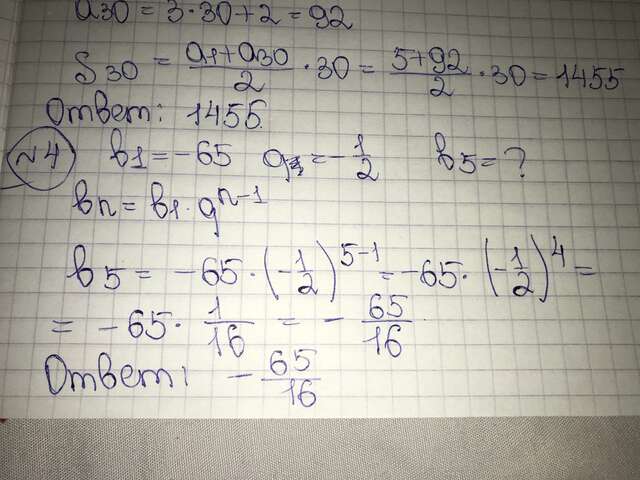 a30 = 3·30+2 = 92
S30 = (a1+a30)/2 · 30 = (5+92)/2 · 30 = 1455
Ответ: 1455.
№4 b1 = -65 q = -1/2 b5 = ?
bn = b1·q^(n-1)
b5 = -65·(-1/2)^(5-1) = -65·(-1/2)^4 =
= -65·1/16 = -65/16
Ответ: -65/16